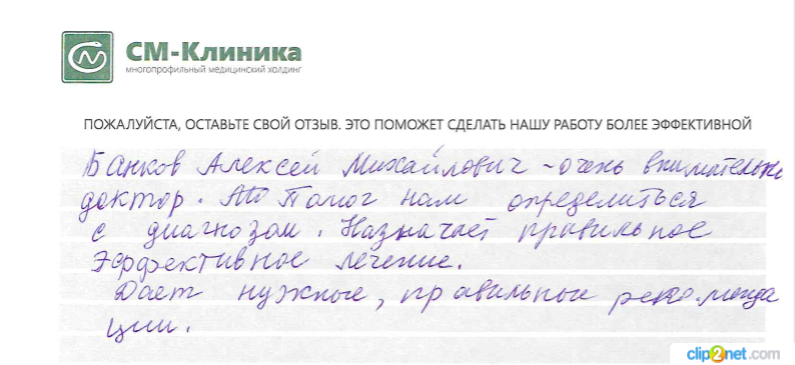 СМ-Клиника
многопрофильный медицинский холдинг
ПОЖАЛУЙСТА, ОСТАВЬТЕ СВОЙ ОТЗЫВ. ЭТО ПОМОЖЕТ СДЕЛАТЬ НАШУ РАБОТУ БОЛЕЕ ЭФФЕКТИВНОЙ
Банков Алексей Михайлович - очень внимательны
доктор. Помог нам определиться
с диагнозом. Назначает правильное
эффективное лечение.
Дает нужные, правильные рекоменда
ции.
clip2net.com